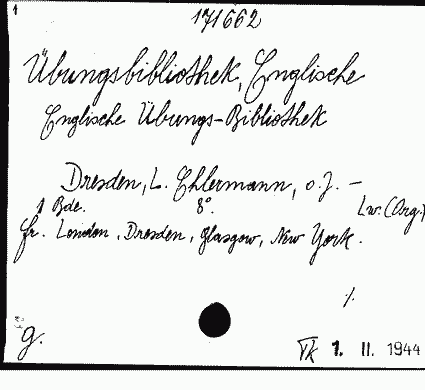 1
171662
Übungsbibliothek, Englische
Englische Übungs-Bibliothek
Dresden, L. Ehlermann, o.J. —
1 Bde. 8°. Lw. (Org.)
fr. London, Dresden, Glasgow, New York.
1/.
g.
1. II. 1944